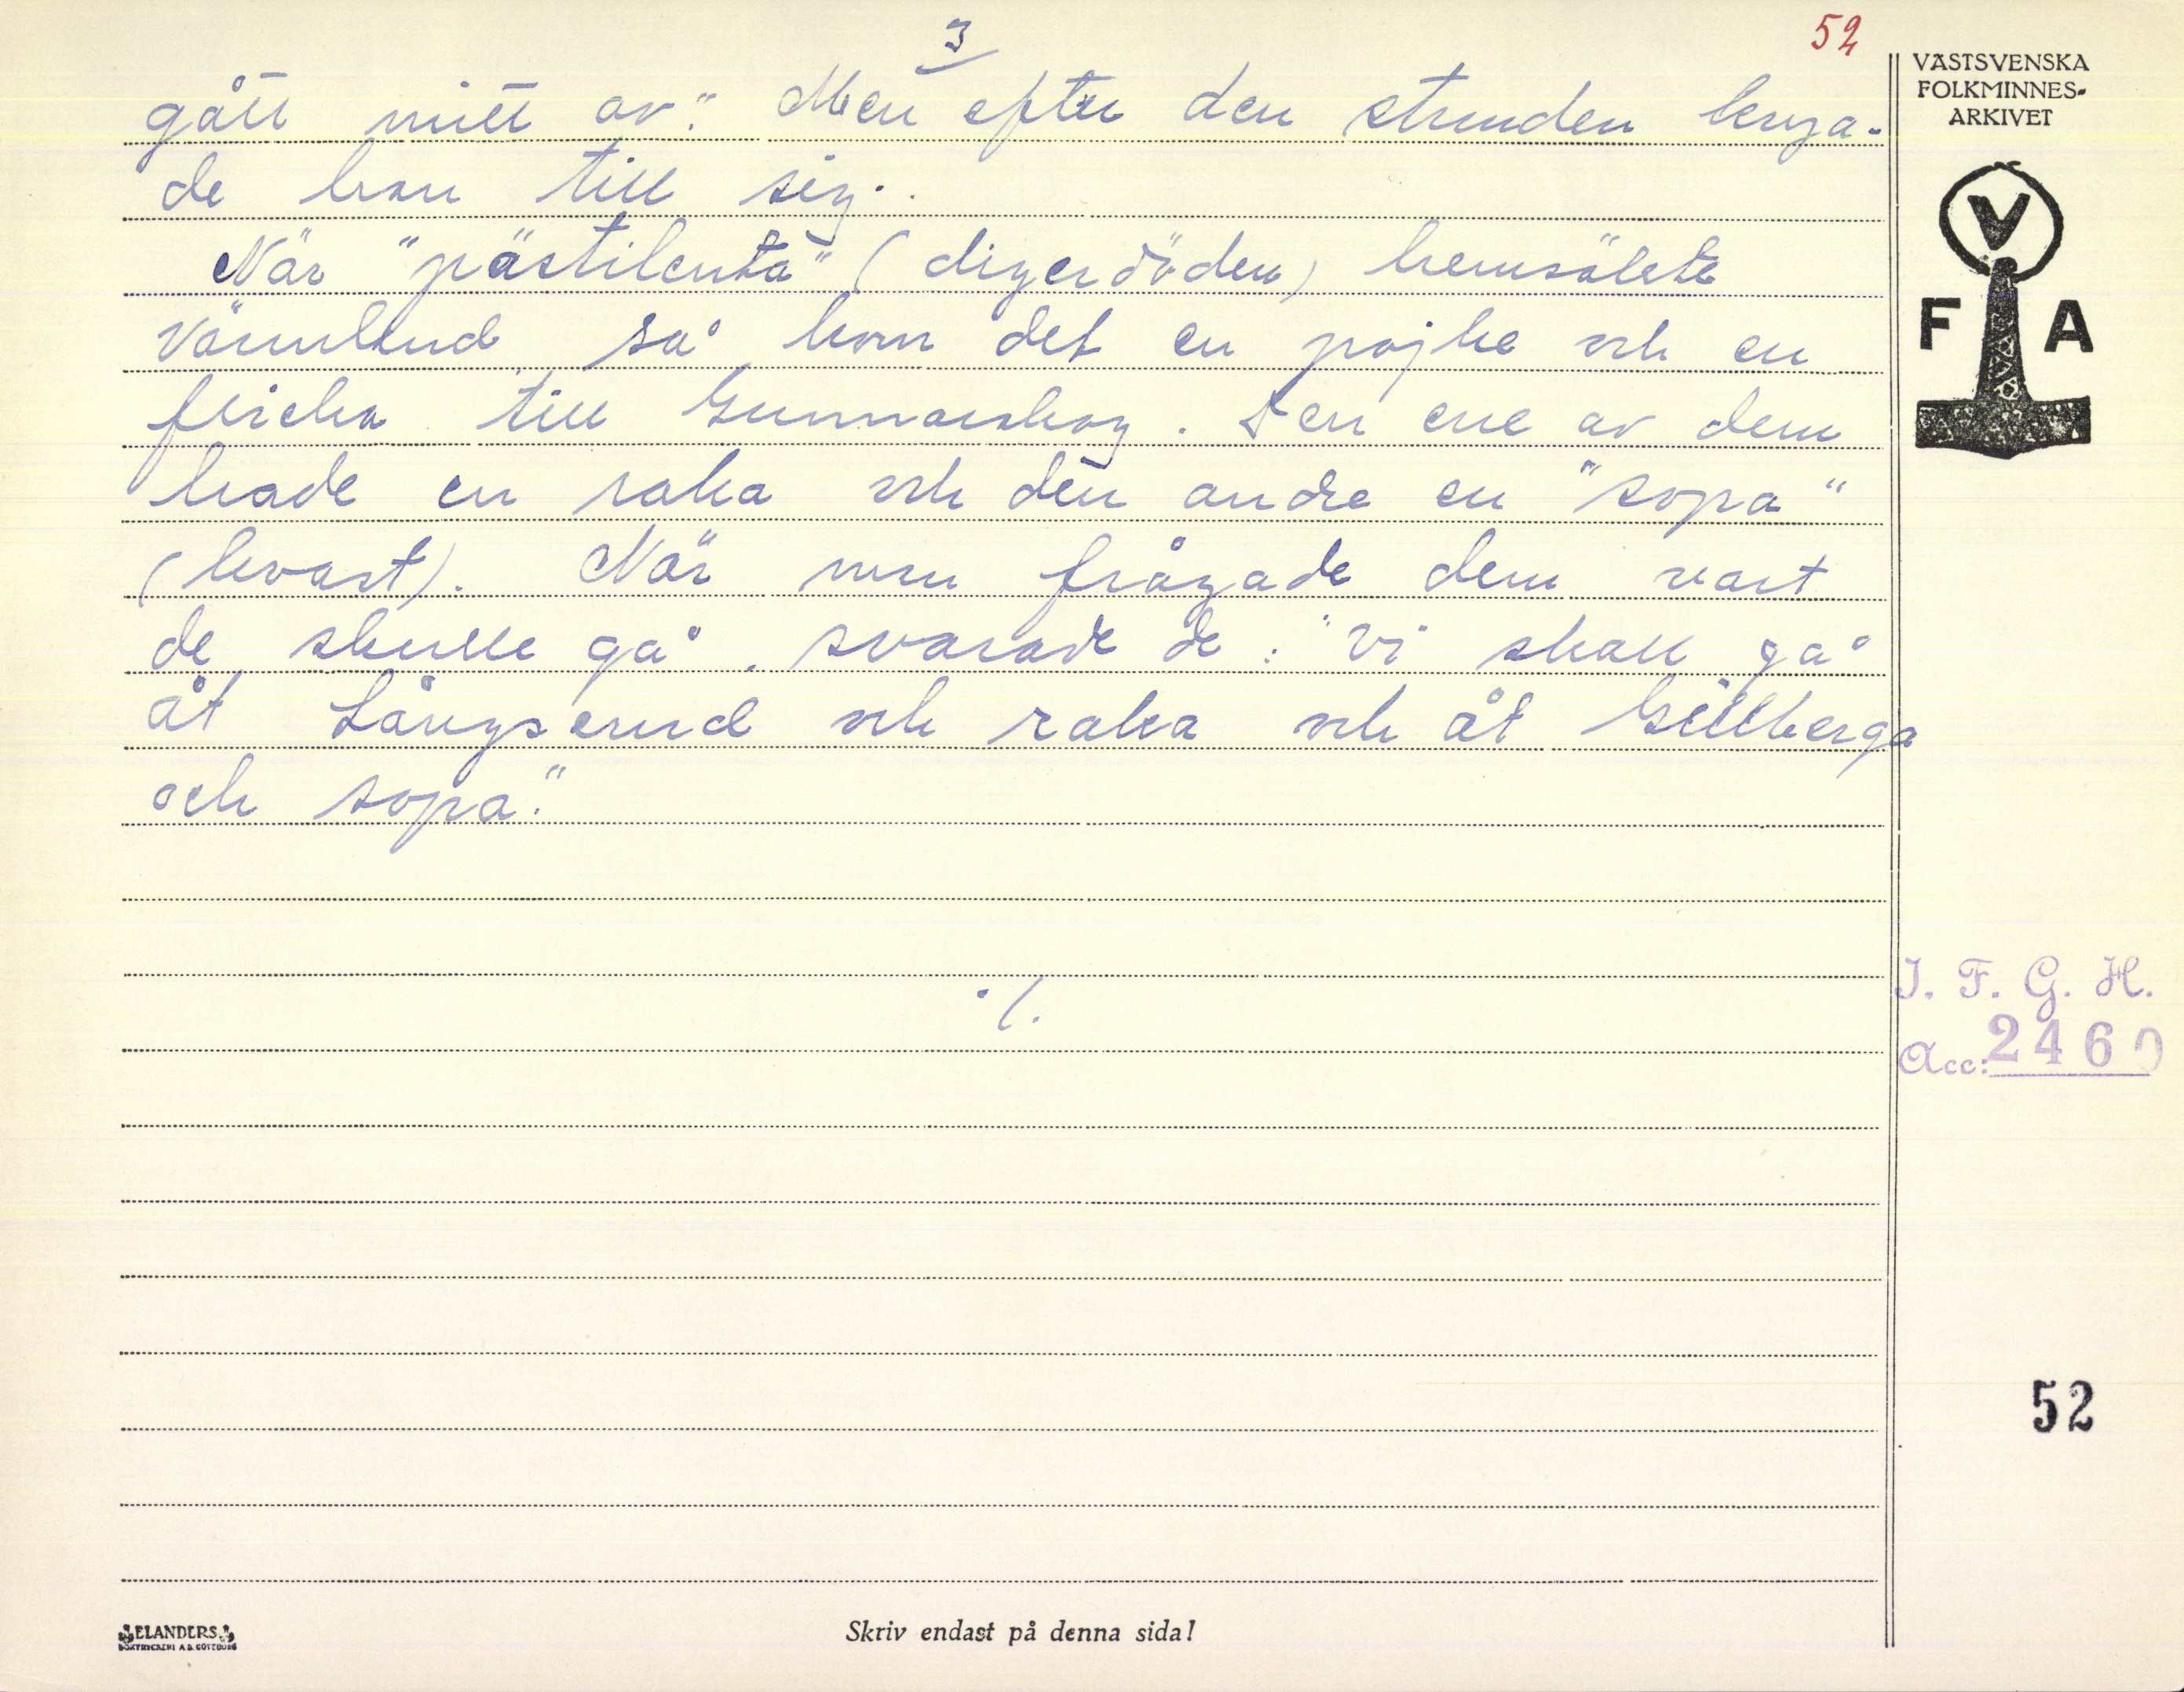 3
52
gått mitt av." Men efter den stunden krya-
de han till sig.
När "pästilenta" (digerdöden) hemsökte
Värmland så kom det en pojke och en
flicka till Gunnarskog. Den ene av dem
hade en raka och den andre en "sopa"
(kvast). När man frågade dem vart
de skulle gå, svarade de: "Vi skall gå
åt Långserud och raka och åt Gillberga
och sopa."
./.
VÄSTSVENSKA
FOLKMINNES-
ARKIVET
V
F A
I. F. G. H.
Acc: 2460
52
ELANDERS
BOKTRYCKERI A.B. GÖTEBORG
Skriv endast på denna sida!